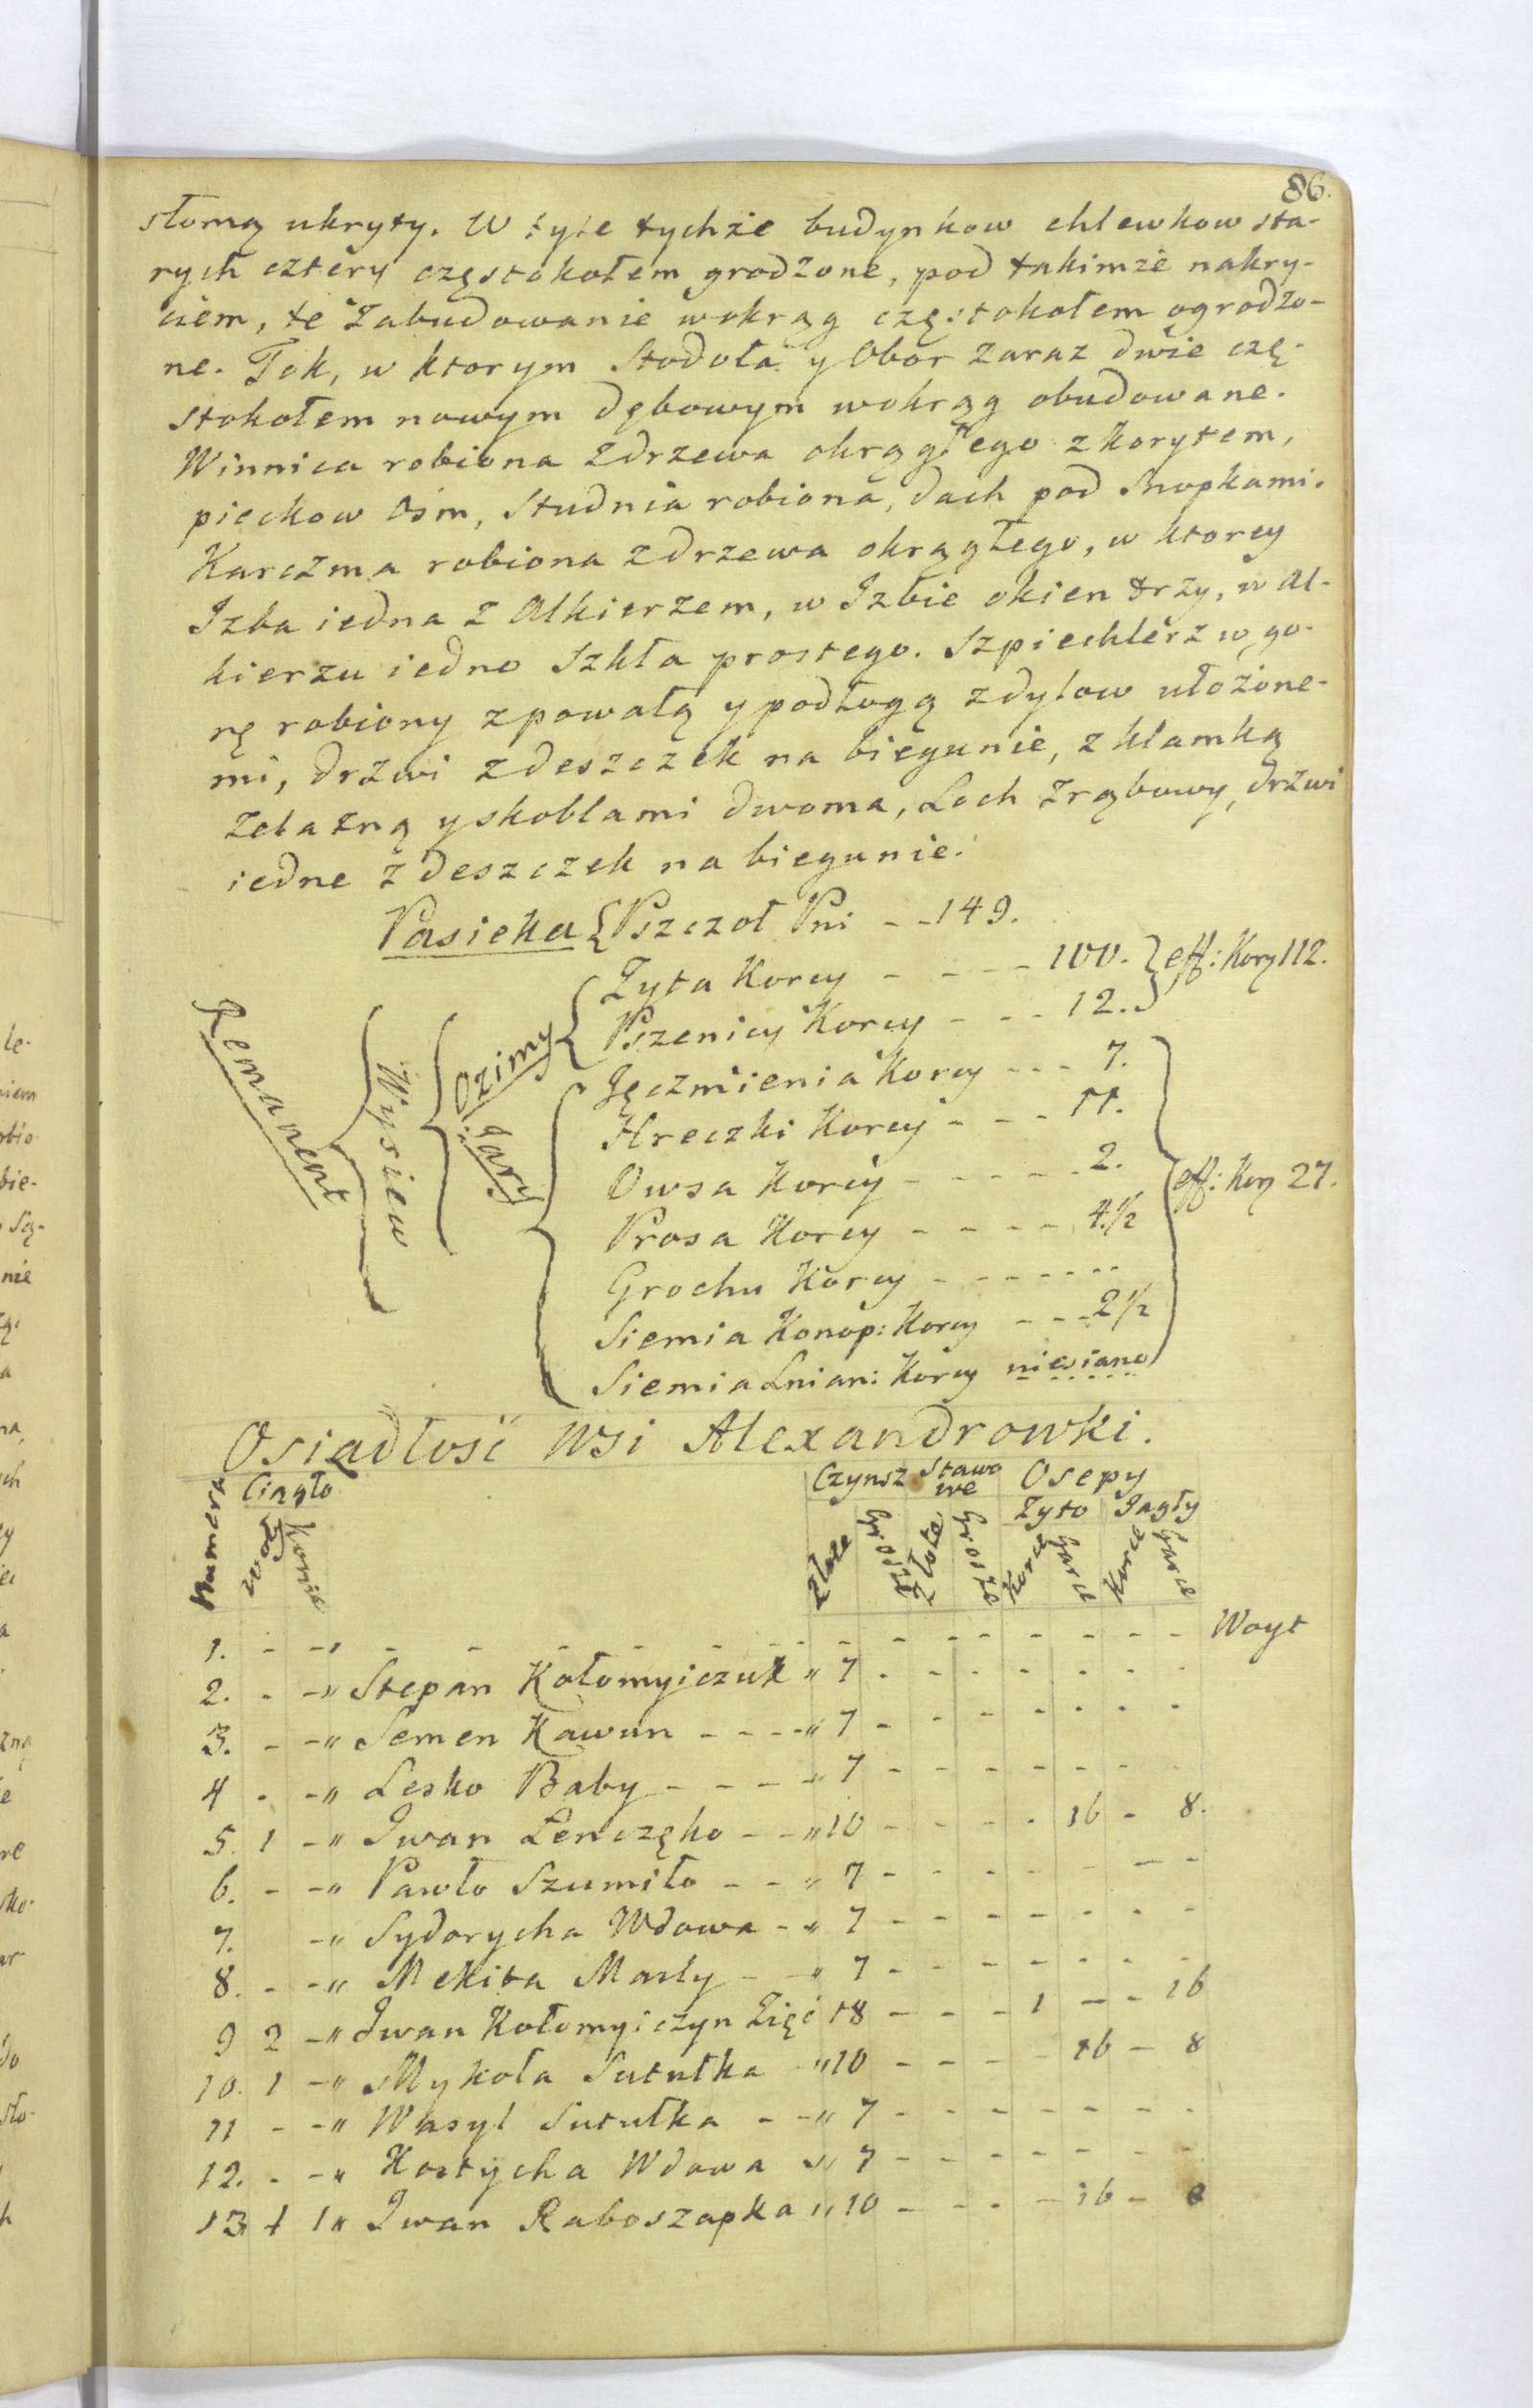 86.
słomą ukryty. W tyle tychże budynkow chlewkow sta-
rych cztery częstokołem grodzone, pod takimże nakry-
ciem, te zabudowanie wokrąg częstokołem ogrodzo-
ne. Tok, w ktorym Stodoła y Obor zaraz dwie czę-
stokołem nowym dębowym wokrąg obudowane.
Winnica robiona zdrzewa okrągłego z korytem,
pieckow Osm, Studnia robiona, dach pod Snopkami.
Karczma robiona zdrzewa okrągłego, w ktorey
Izba iedna z Alkierzem, w Izbie okien trzy, w Al-
kierzu iedno Szkła prostego. Szpiechlerz w go-
rę robiony zpowałą ypodłogą zdylow ułożone-
mi, drzwi zdeszczek na biegunie, z klamką
żelazną yskoblami dwoma, Loch zrąbowy, drzwi
iedne zdeszczek na biegunie.
Pasieka { Pszczoł Pni - - 149.
Remanent
Wysiew
Ozimy
Żyta Korcy - - - - 100. } eff: Korcy 112.
Pszenicy Korcy - - - 12.
Jary
Jęczmienia Korcy - - - 7.
Hreczki Korcy - - - 11.
Owsa Korcy - - - - - 2.
Prosa Korcy - - - - 4.½
eff: Korcy 27.
Grochu Korcy - - - - - - -
Siemia Konop: Korcy - - - 2½
Siemia Lnian: Korcy niesiano
Osiadłość Wsi Alexandrowki.
Numera Ciągło Czynsz Stawowe Osepy
Żyto Jagły
Woły Konie Złote Grosze Złote Grosze Korce Garce Korce Garce
1. - - " - - - - - - - - - - - - - - Woyt
2. - - " Stepan Kołomyiczuk " 7 - - - - - - -
3. - - " Semen Kawun - - - - " 7 - - - - - - -
4 - - " Lesko Baby - - - - " 7 - - - - - - -
5. 1 - " Iwan Lenczęko - - " 10 - - - - 16 - 8.
6. - - " Pawło Szumiło - - " 7 - - - - - - -
7. - " Sydorycha Wdowa - " 7 - - - - - - -
8. - - " Mekita Masly - - " 7 - - - - - - -
9 2 - " Iwan Kołomyiczyn Zięć 18 - - - 1 - - 16
10. 1 - " Mykoła Sutułka " 10 - - - - 16 - 8
11 - - " Wasyl Sutułka - - " 7 - - - - - - -
12. - - " Kostycha Wdowa " 7 - - - - - - -
13 1 1 " Iwan Raboszapka " 10 - - - - 16 - 8